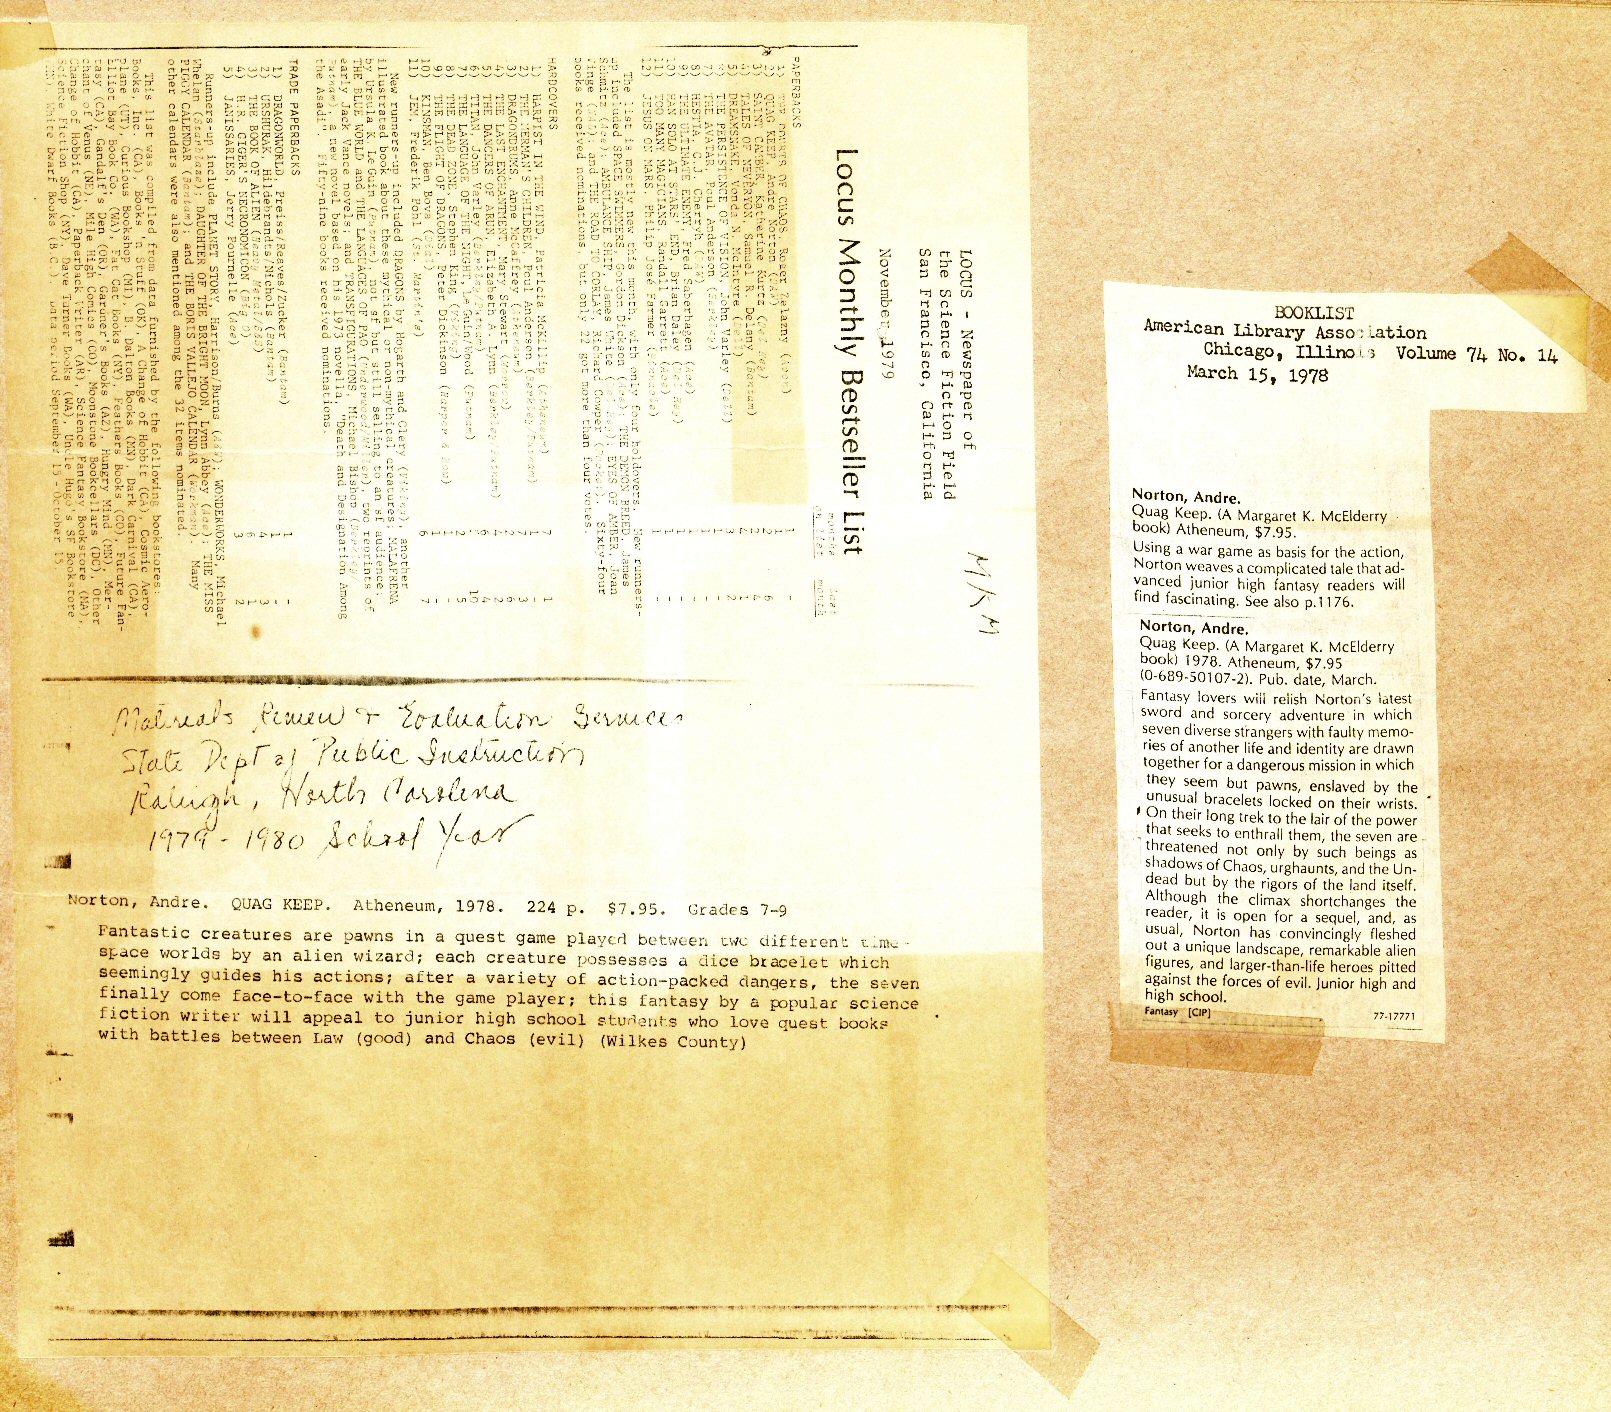 LOCUS - Newspaper of
the Science Fiction Field
San Francisco, California
November 1979
MKM
Locus Monthly Bestseller List
months on list
last month
PAPERBACKS
1) THE COURTS OF CHAOS, Roger Zelazny (Avon) 1 -
2) QUAG KEEP, Andre Norton 2 6
3) SAINT CAMBER, Katherine Kurtz 2 4
4) TALES OF NEVERYON, Samuel R. Delany (Bantam)
5) DREAMSNAKE, Vonda N. McIntyre (Dell)
THE PERSISTENCE OF VISION, John Varley (Dell)
7) THE AVATAR, Poul Anderson
8) HESTIA, C.J. Cherryh
9) THE ULTIMATE ENEMY, Fred Saberhagen (Ace)
HAN SOLO AT STARS' END, Brian Daley (Del Rey)
TOO MANY MAGICIANS, Randall Garrett (Ace)
12) JESUS ON MARS, Philip José Farmer
The list is mostly new this month, with only four holdovers. New runners-
up included SPACE SWIMMERS, Gordon Dickson (Ace); THE DEMON BREED, James
Schmitz (Ace); AMBULANCE SHIP, James White (Del Rey); EYES OF AMBER, Joan
Vinge; and THE ROAD TO CORLAY, Richard Cowper. Sixty-four
books received nominations but only 22 got more than four votes.
HARDCOVERS
1) HARPIST IN THE WIND, Patricia McKillip (Atheneum) 7 1
2) THE MERMAN'S CHILDREN, Poul Anderson (Berkley/Putnam)
3) DRAGONDRUMS, Anne McCaffrey (Atheneum)
4) THE LAST ENCHANTMENT, Mary Stewart
5) THE DANGERS OF ARDN, Elizabeth Lynn (Berkley/Putnam)
6) TITAN, John Varley (Berkley/Putnam)
7) THE LANGUAGE OF THE NIGHT, Le Guin/Wood (Putnam)
8) THE DEAD ZONE, Stephen King (Viking)
9) THE FLIGHT OF DRAGONS, Peter Dickinson (Harper & Row)
10) KINSMAN, Ben Bova (Dial)
11) JEM, Frederik Pohl (St. Martin's) 6 7
New runners-up included DRAGONS by Hogarth and Clery (Viking), another
illustrated book about these mythical or non-mythical creatures; MALAFRENA
by Ursula K. Le Guin (Putnam), not sf but still selling to an sf audience;
THE BLUE WORLD and THE LANGUAGES OF PAO, two reprints of
early Jack Vance novels; and TRANSFIGURATIONS, Michael Bishop (Berkley/
Putnam), a new novel based on his 1973 novella, "Death and Designation Among
the Asadi". Fifty-nine books received nominations.
TRADE PAPERBACKS
1) DRAGONWORLD, Preiss/Reaves/Zucker (Bantam) 1 -
2) URSHURAK, Hildebrandts/Nichols (Bantam) 1 -
3) THE BOOK OF ALIEN (Heavy Metal) 4 3
4) H.R. GIGER'S NECRONOMICON (Big O) 6 1
5) JANISSARIES, Jerry Pournelle (Ace) 3 2
Runners-up include PLANET STORY, Harrison/Burns; WONDERWORKS, Michael
Whelan (Starblaze); DAUGHTER OF THE BRIGHT MOON, Lynn Abbey (Ace); THE MISS
PIGGY CALENDAR; and THE BORIS VALLEJO CALENDAR (Workman). Many
other calendars were also mentioned among the 32 items nominated.
This list was compiled from data furnished by the following bookstores:
Books, Inc. (CA), Books 'n Stuff (OK), A Change of Hobbit (CA), Cosmic Aero-
plane (UT), Curious Bookshop (MI), B. Dalton Books (MN), Dark Carnival (CA),
Elliot Bay Book Co. (WA), Fat Cat Books (NY), Feathers Books (CO), Future Fan-
tasy (CA), Gandalf's Den (OR), Gardner's Books (AZ), Hungry Mind (MN), Mer-
chant of Venus (NE), Mile High Comics (CO), Moonstone Bookcellars (DC), Other
Change of Hobbit (CA), Paperback Writer (AR), Science Fantasy Bookstore (MA),
Science Fiction Shop (NY), Dave Turner Books (WA), Uncle Hugo's SF Bookstore
(MN), White Dwarf Books (B.C.). Data period September 15 - October 15.
Materials Review & Evaluation Services
State Dept of Public Instruction
Raleigh, North Carolina
1979 - 1980 School Year
Norton, Andre. QUAG KEEP. Atheneum, 1978. 224 p. $7.95. Grades 7-9
Fantastic creatures are pawns in a quest game played between two different time-
space worlds by an alien wizard; each creature possesses a dice bracelet which
seemingly guides his actions; after a variety of action-packed dangers, the seven
finally come face-to-face with the game player; this fantasy by a popular science
fiction writer will appeal to junior high school students who love quest books
with battles between Law (good) and Chaos (evil) (Wilkes County)
BOOKLIST
American Library Association
Chicago, Illinois Volume 74 No. 14
March 15, 1978
Norton, Andre.
Quag Keep. (A Margaret K. McElderry
book) Atheneum, $7.95.
Using a war game as basis for the action,
Norton weaves a complicated tale that ad-
vanced junior high fantasy readers will
find fascinating. See also p.1176.
Norton, Andre.
Quag Keep. (A Margaret K. McElderry
book) 1978. Atheneum, $7.95
(0-689-50107-2). Pub. date, March.
Fantasy lovers will relish Norton's latest
sword and sorcery adventure in which
seven diverse strangers with faulty memo-
ries of another life and identity are drawn
together for a dangerous mission in which
they seem but pawns, enslaved by the
unusual bracelets locked on their wrists.
On their long trek to the lair of the power
that seeks to enthrall them, the seven are
threatened not only by such beings as
shadows of Chaos, urghaunts, and the Un-
dead but by the rigors of the land itself.
Although the climax shortchanges the
reader, it is open for a sequel, and, as
usual, Norton has convincingly fleshed
out a unique landscape, remarkable alien
figures, and larger-than-life heroes pitted
against the forces of evil. Junior high and
high school.
Fantasy [CIP] 77-17771